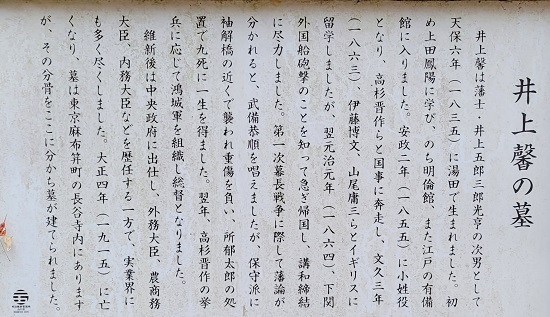 井上馨の墓
井上馨は藩士・井上五郎三郎光亨の次男として
天保六年（一八三五）に湯田で生まれました。初
め上田鳳陽に学び、のち明倫館、また江戸の有備
館に入りました。安政二年（一八五五）に小姓役
となり、高杉晋作らと国事に奔走し、文久三年
（一八六三）、伊藤博文、山尾庸三らとイギリスに
留学しましたが、翌元治元年（一八六四）、下関
外国船砲撃のことを知って急ぎ帰国し、講和締結
に尽力しました。第一次幕長戦争に際して藩論が
分かれると、武備恭順を唱えましたが、保守派に
袖解橋の近くで襲われ重傷を負い、所郁太郎の処
置で九死に一生を得ました。翌年、高杉晋作の挙
兵に応じて鴻城軍を組織し総督となりました。
維新後は中央政府に出仕し、外務大臣、農商務
大臣、内務大臣などを歴任する一方で、実業界に
も多く尽くしました。大正四年（一九一五）に亡
くなり、墓は東京麻布笄町の長谷寺内にあります
が、その分骨をここに分から墓が建てられました。